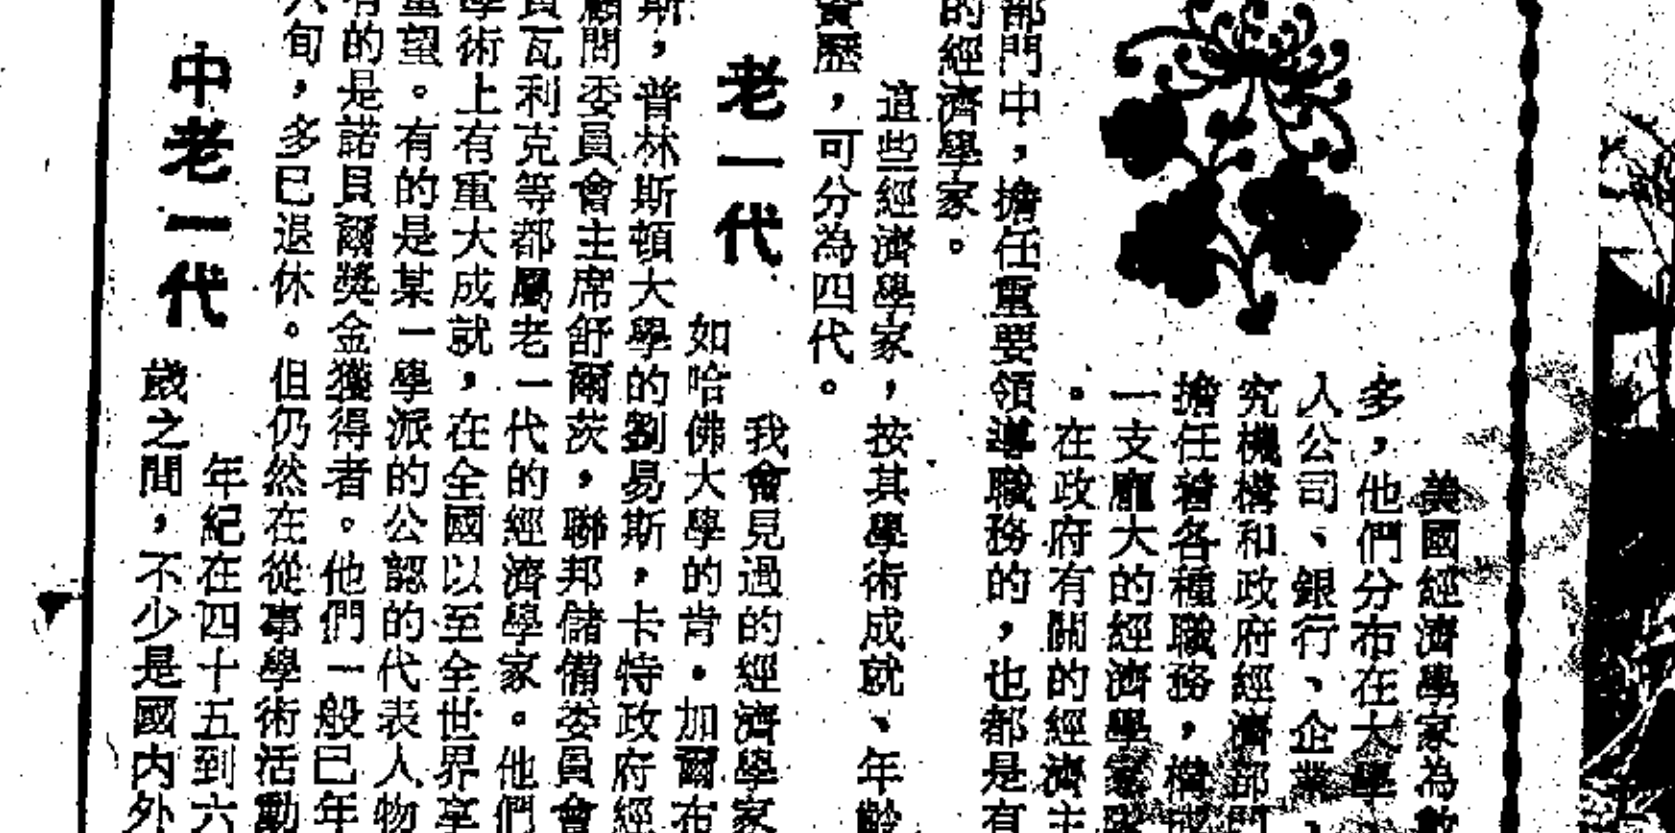 美國經濟學家為數
多，他們分布在大學
入公司、銀行、企業、
究機構和政府經濟部門
擔任着各種職務，構成
一支龐大的經濟學家隊
。在政府有關的經濟主
部門中，擔任重要領導職務的，也都是有
的經濟學家。
這些經濟學家，按其學術成就、年齡
資歷，可分為四代。
老一代
我會見過的經濟學家
如哈佛大學的肯·加爾布
斯，普林斯頓大學的劉易斯，卡特政府經
顧問委員會主席舒爾茨，聯邦儲備委員會
員瓦利克等都屬老一代的經濟學家。他們
學術上有重大成就，在全國以至全世界享
重望。有的是某一學派的公認的代表人物
有的是諾貝爾獎金獲得者。他們一般已年
六旬，多已退休。但仍然在從事學術活動
中老一代
年紀在四十五到六
歲之間，不少是國內外